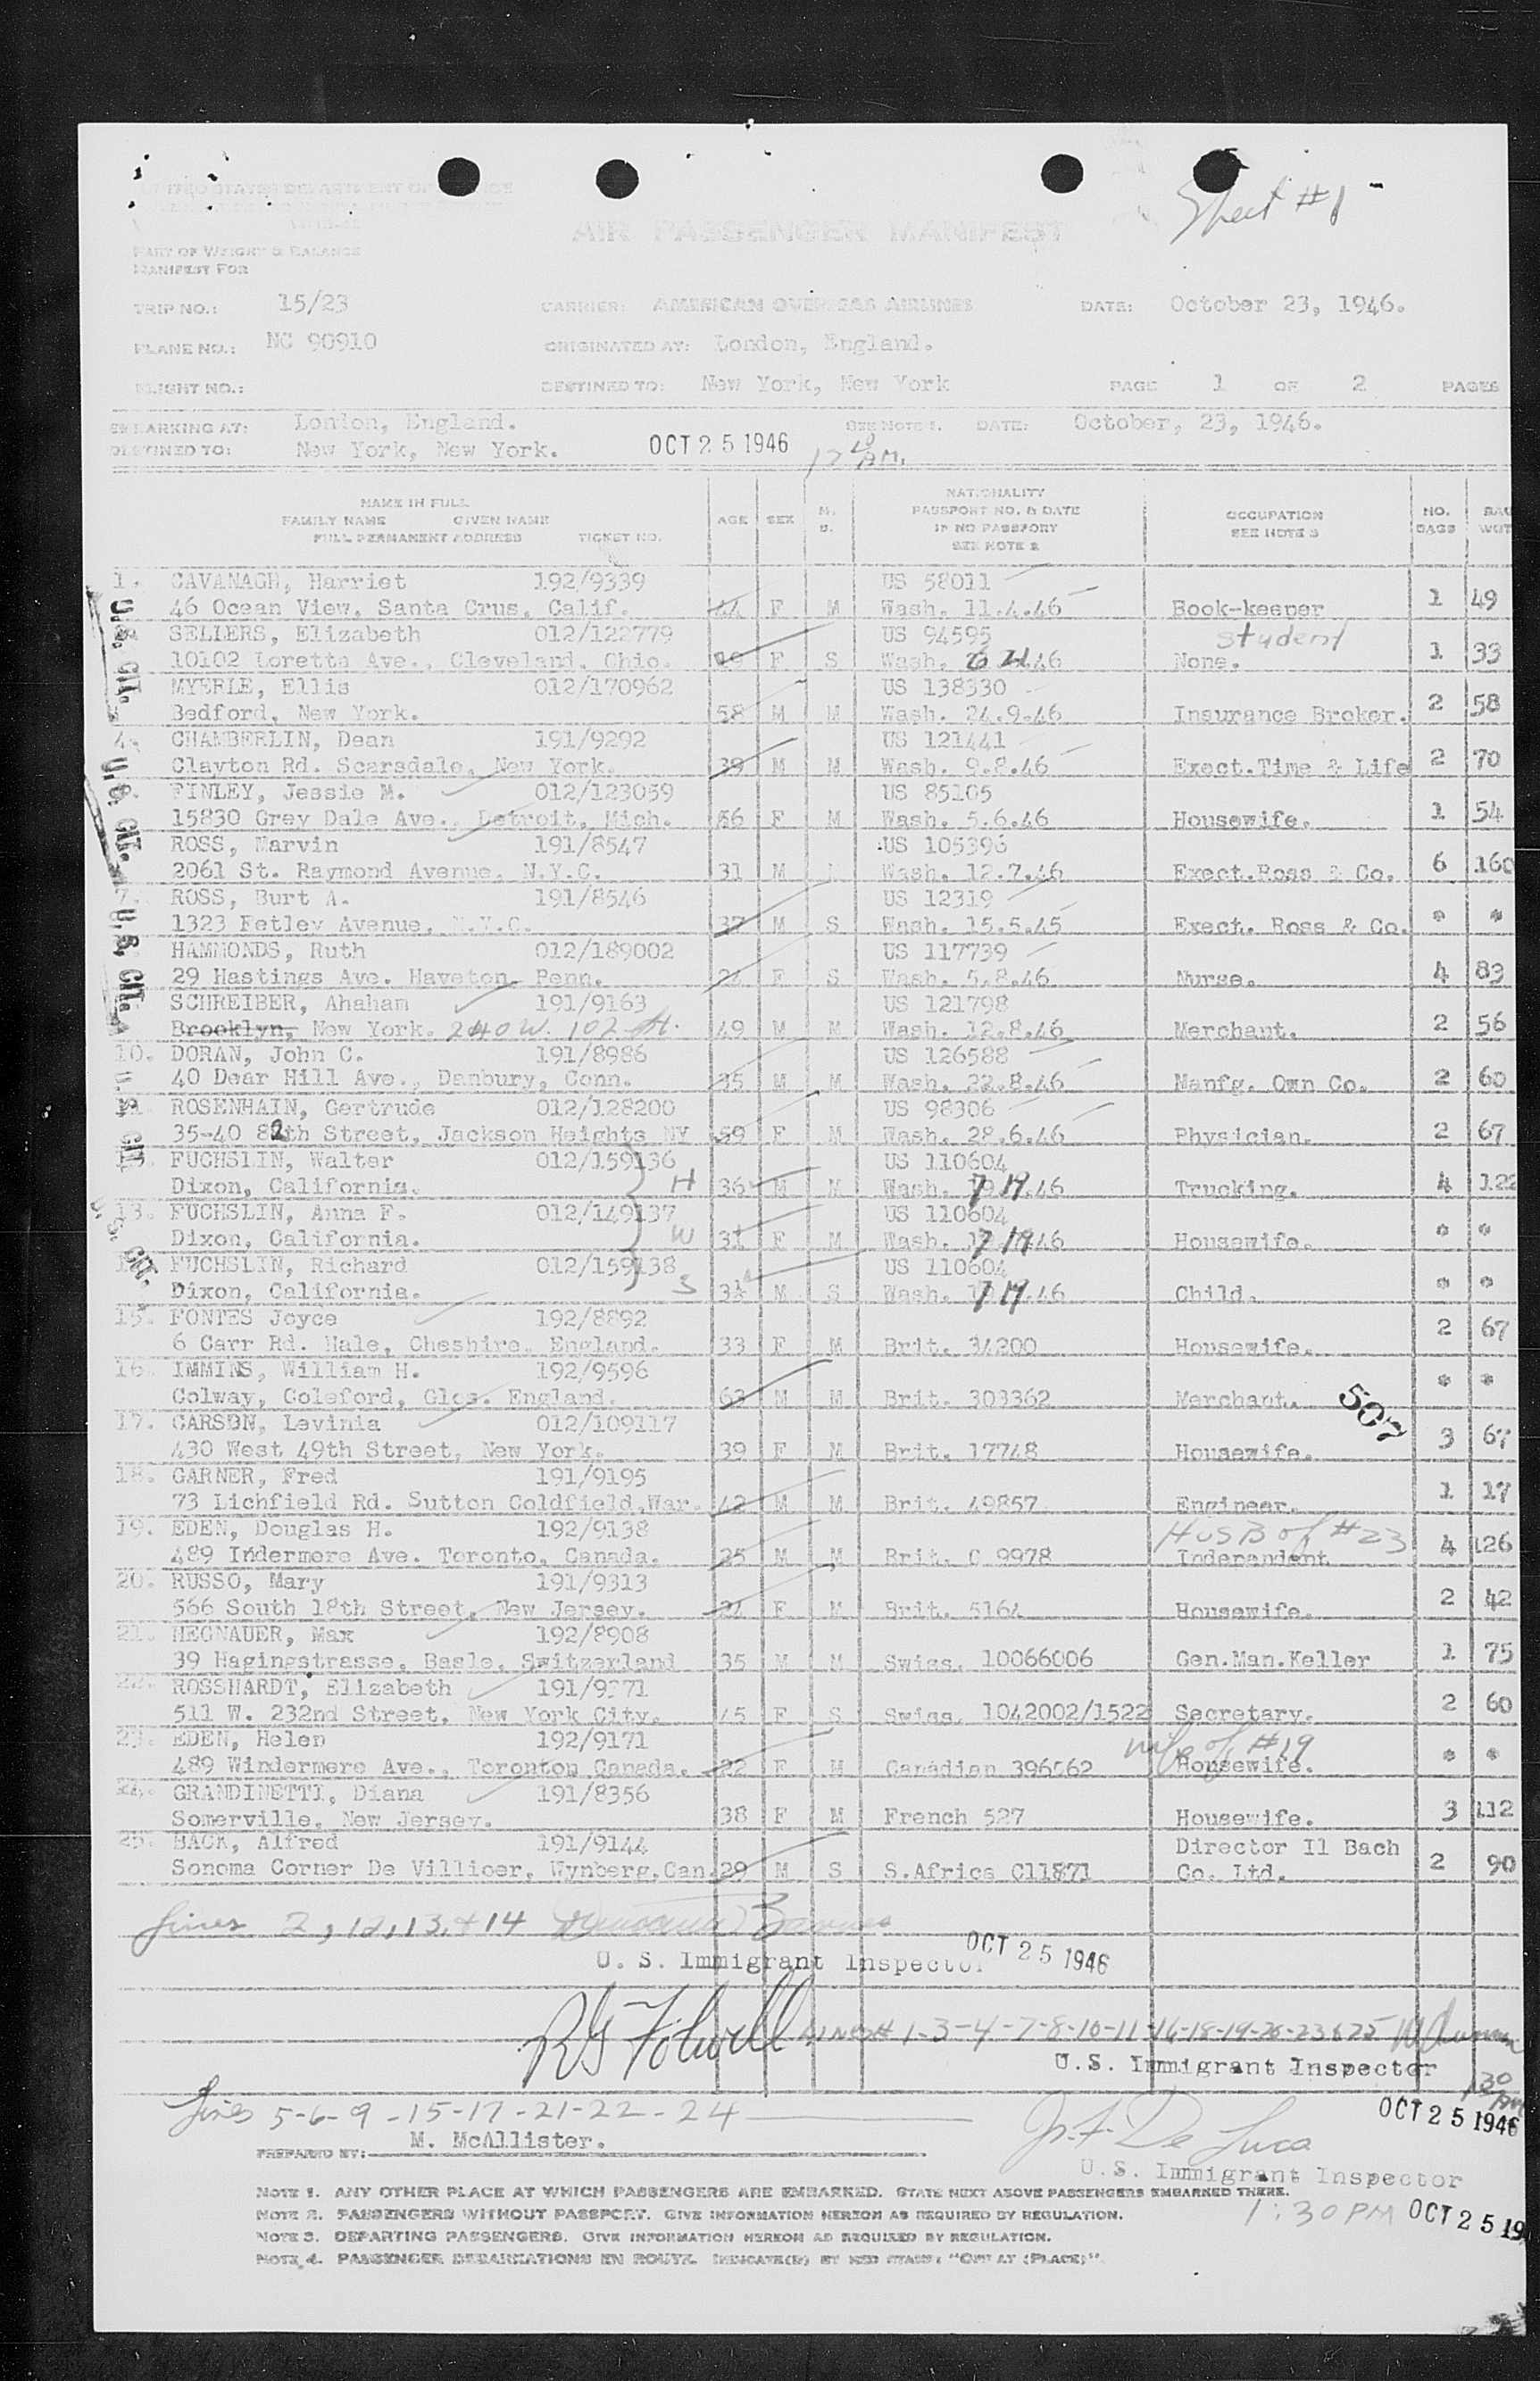 Sheet #1
UNITED STATES DEPARTMENT OF
AIR PASSENGER MANIFEST
PART OF WEIGHT & BALANCE
MANIFEST FOR
TRIP NO.: 15/23 CARRIER: AMERICAN OVERSEAS AIRLINES DATE: October 23, 1946.
PLANE NO.: NC 90910 ORIGINATED AT: London, England.
FLIGHT NO.: DESTINED TO: New York, New York PAGE 1 OF 2 PAGES
EMBARKING AT: London, England. SEE NOTE 1. DATE: October, 23, 1946.
DESTINED TO: New York, New York. OCT 25 1946 AM.
NAME IN FULL
FAMILY NAME GIVEN NAME
FULL PERMANENT ADDRESS TICKET NO.
AGE SEX M. S.
NATIONALITY
PASSPORT NO. & DATE
IF NO PASSPORT
SEE NOTE 2
OCCUPATION
SEE NOTE 3
NO. BAGS
BAG WGT
1. CAVANAGH, Harriet 192/9339 US 58011
46 Ocean View, Santa Crus, Calif. 44 F M Wash. 11.4.46 Book-keeper 1 49
SELLERS, Elizabeth 012/122779 US 94595 student
10102 Loretta Ave., Cleveland, Ohio. F S Wash. 46 None. 1 33
MYERLE, Ellis 012/170962 US 138330
Bedford, New York. 58 M M Wash. 24.9.46 Insurance Broker. 2 58
4. CHAMBERLIN, Dean 191/9292 US 121441
Clayton Rd. Scarsdale, New York. 39 M M Wash. 9.8.46 Exect.Time & Life 2 70
FINLEY, Jessie M. 012/123059 US 85105
15830 Grey Dale Ave., Detroit, Mich. 56 F M Wash. 5.6.46 Housewife. 1 54
ROSS, Marvin 191/8547 US 105396
2061 St. Raymond Avenue, N.Y.C. 31 M M Wash. 12.7.46 Exect.Ross & Co. 6 160
7. ROSS, Burt A. 191/8546 US 12319
1323 Fetley Avenue, N.Y.C. 37 M S Wash. 15.5.45 Exect. Ross & Co. * *
HAMMONDS, Ruth 012/189002 US 117739
29 Hastings Ave. Haveton, Penn. 24 F S Wash. 5.8.46 Nurse. 4 83
SCHREIBER, Ahaham 191/9163 US 121798
Brooklyn, New York. 240 W. 102 St. 49 M M Wash. 12.8.46 Merchant. 2 56
10. DORAN, John C. 191/8986 US 126588
40 Dear Hill Ave., Danbury, Conn. 35 M M Wash. 22.8.46 Manfg. Own Co. 2 60
ROSENHAIN, Gertrude 012/128200 US 98306
35-40 82th Street, Jackson Heights NY 59 F M Wash. 28.6.46 Physician. 2 67
FUCHSLIN, Walter 012/159136 US 110604
Dixon, California. H 36 M M Wash. 7 19.46 Trucking. 4 122
13. FUCHSLIN, Anna F. 012/149137 US 110604
Dixon, California. W 31 F M Wash. 7 19 46 Housewife. * *
FUCHSLIN, Richard 012/159138 US 110604
Dixon, California. S 3½ M S Wash. 7 19.46 Child. * *
15. FONTES Joyce 192/8892
6 Carr Rd. Hale, Cheshire, England. 33 F M Brit. 34200 Housewife. 2 67
16. IMMINS, William H. 192/9596
Colway, Coleford, Glos. England. 63 M M Brit. 303362 Merchant. * *
507
17. CARSON, Levinia 012/109117
430 West 49th Street, New York. 39 F M Brit. 17748 Housewife. 3 67
18. GARNER, Fred 191/9195
73 Lichfield Rd. Sutton Coldfield,War. 42 M M Brit. 49857 Engineer. 1 17
19. EDEN, Douglas H. 192/9138 HUSB of #23
489 Indermere Ave. Toronto, Canada. 25 M M Brit. C 9978 Independent 4 126
20. RUSSO, Mary 191/9313
566 South 18th Street, New Jersey. 24 F M Brit. 5164 Housewife. 2 42
21. HEGNAUER, Max 192/8908
39 Hagingstrasse, Basle, Switzerland 35 M M Swiss. 10066006 Gen.Man.Keller 1 75
22. ROSSHARDT, Elizabeth 191/9371
511 W. 232nd Street, New York City. 45 F S Swiss. 1042002/1522 Secretary. 2 60
23. EDEN, Helen 192/9171 wife of #19
489 Windermere Ave., Toronton Canada. 22 F M Canadian 396062 Housewife. * *
24. GRANDINETTI, Diana 191/8356
Somerville, New Jersey. 38 F M French 527 Housewife. 3 112
25. BACK, Alfred 191/9144 Director Il Bach
Sonoma Corner De Villioer, Wynberg.Can. 29 M S S.Africa C11871 Co. Ltd. 2 90
U.S. CIT. U.S. CIT. U.S. CIT. U.S. CIT. U.S. CIT.
Lines 2, 12, 13, + 14
U. S. Immigrant Inspector OCT 25 1946
Lines# 1-3-4-7-8-10-11-16-18-19-20-23&25
U.S. Immigrant Inspector
130 AM
OCT 25 1946
Lines 5-6-9-15-17-21-22-24
J. F. De Luca
PREPARED BY: M. McAllister.
U.S. Immigrant Inspector
NOTE 1. ANY OTHER PLACE AT WHICH PASSENGERS ARE EMBARKED. STATE NEXT ABOVE PASSENGERS EMBARKED THERE.
1:30 PM OCT 25 19
NOTE 2. PASSENGERS WITHOUT PASSPORT. GIVE INFORMATION HEREON AS REQUIRED BY REGULATION.
NOTE 3. DEPARTING PASSENGERS. GIVE INFORMATION HEREON AS REQUIRED BY REGULATION.
NOTE 4. PASSENGER DEBARKATIONS EN ROUTE. INDICATE(D) BY RED STAMP: "OFF AT (PLACE)".